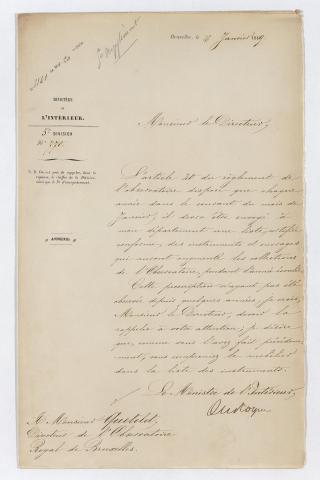 Bruxelles, le 8 Janvier 1849.
MINISTÈRE
DE
L'INTÉRIEUR.
5e DIVISION
No 770.
N. B. On est prié de rappeler, dans la
réponse, le chiffre de la Division,
ainsi que le No d'enregistrement.
ANNEXES
Monsieur le Directeur,
L'article 20 du règlement de
l'observatoire dispose que chaque
année dans le courant du mois de
Janvier, il devra être envoyé à
mon département une liste, certifiée
conforme, des instruments et ouvrages
qui auront augmenté les collections
de l'Observatoire, pendant l'année écoulée.
Cette prescription n'ayant pas été
observée depuis quelques années, je crois,
Monsieur le Directeur, devoir la
rappeler à votre attention; je désire
que, comme vous l'avez fait précédem-
ment, vous compreniez le mobilier
dans la liste des instruments.
Le Ministre de l'Intérieur,
A Monsieur Quetelet,
Directeur de l'Observatoire
Royal de Bruxelles.